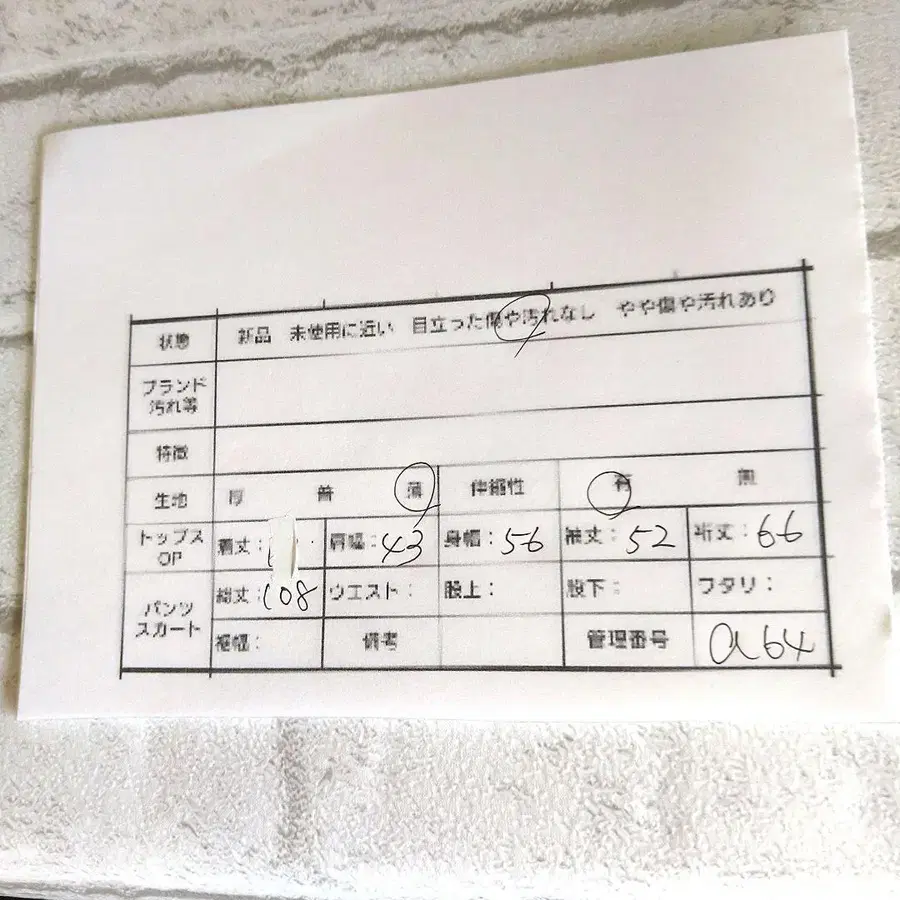 状態 新品 未使用に近い 目立った傷や汚れなし やや傷や汚れあり
ブランド
汚れ等
特徴
生地 厚 普 薄 伸縮性 有 無
トップス
OP
着丈: 肩幅:43 身幅:56 袖丈:52 裄丈:66
パンツ
スカート
総丈:108 ウエスト: 股上: 股下: ワタリ:
裾幅: 備考 管理番号 a64